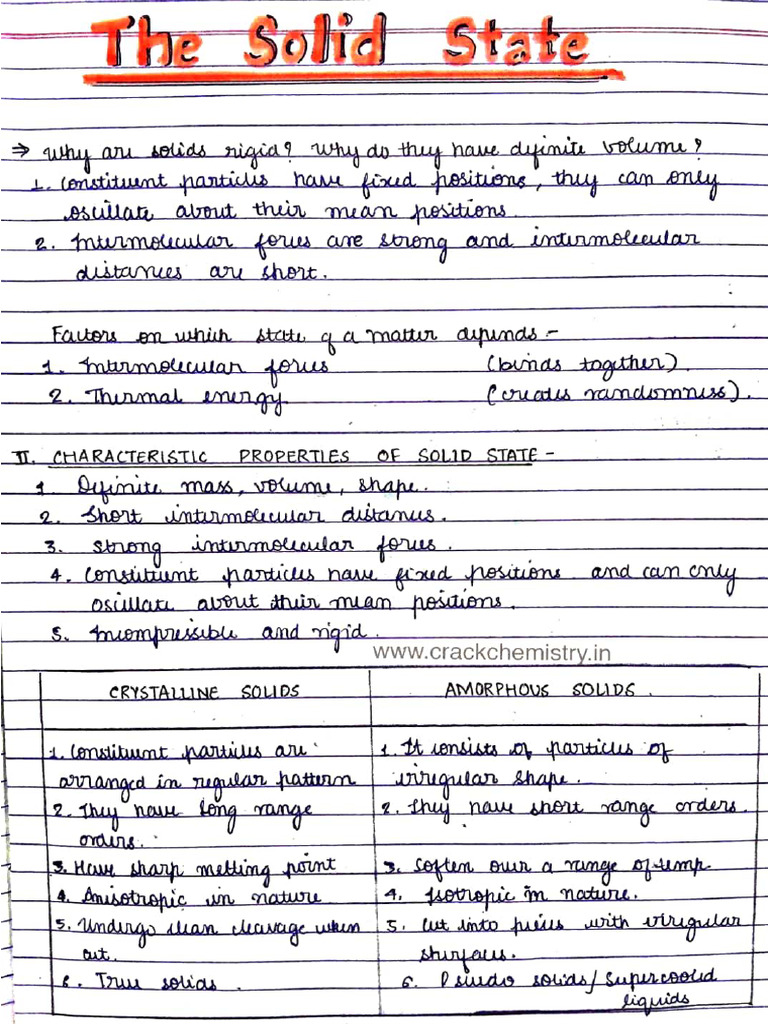 The Solid State
⇒ Why are solids rigid? Why do they have definite volume?
1. Constituent particles have fixed positions, they can only
oscillate about their mean positions.
2. Intermolecular forces are strong and intermolecular
distances are short.
Factors on which state of a matter depends:-
1. Intermolecular forces (binds together).
2. Thermal energy (creates randomness).
II. CHARACTERISTIC PROPERTIES OF SOLID STATE -
1. Definite mass, volume, shape.
2. Short intermolecular distances.
3. Strong intermolecular forces.
4. Constituent particles have fixed positions and can only
oscillate about their mean positions.
5. Incompressible and rigid.
www.crackchemistry.in
CRYSTALLINE SOLIDS
1. Constituent particles are
arranged in regular pattern
2. They have long range
orders.
3. Have sharp melting point
4. Anisotropic in nature
5. Undergo clean cleavage when
cut.
6. True solids.
AMORPHOUS SOLIDS.
1. It consists of particles of
irregular shape.
2. They have short range orders.
3. Soften over a range of temp.
4. Isotropic in nature.
5. Cut into pieces with irregular
surfaces.
6. Pseudo solids/Supercooled
liquids